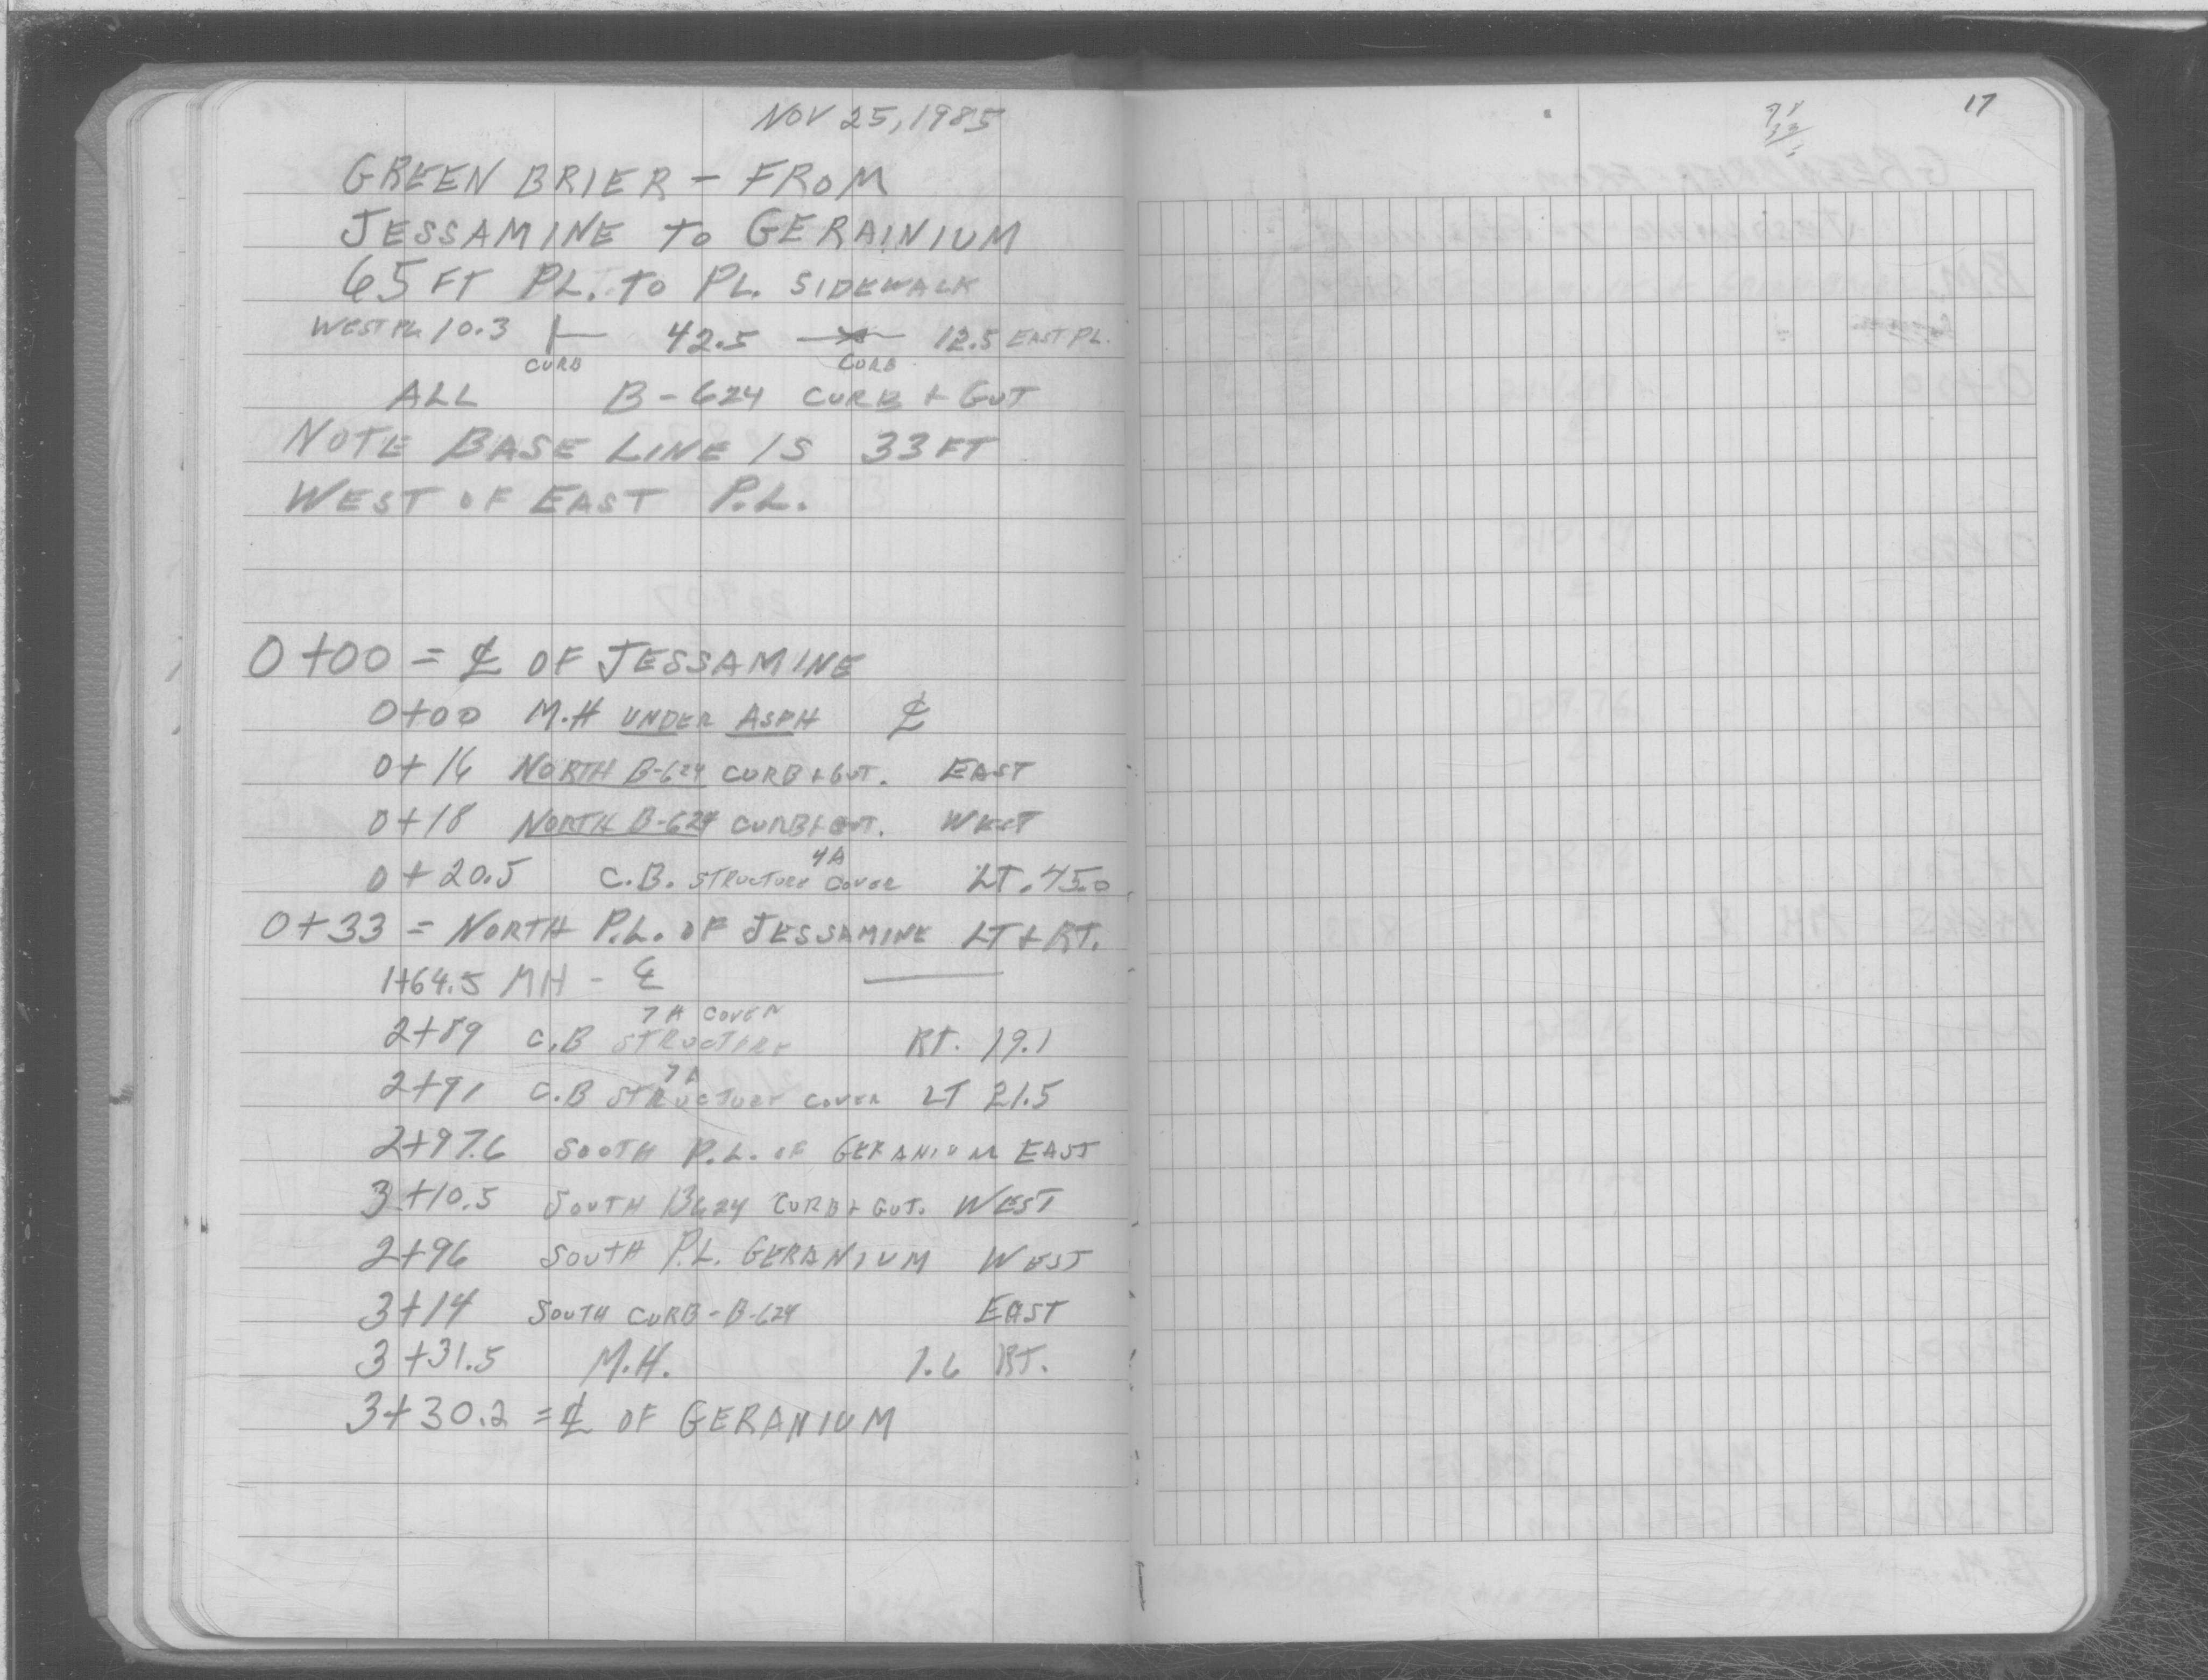 NOV 25, 1985
GREEN BRIER - FROM
JESSAMINE TO GERAINIUM
65 FT PL. TO PL. SIDEWALK
WEST PL. 10.3 42.5 12.5 EAST PL.
CURB CURB
ALL B-624 CURB + GUT
NOTE BASE LINE IS 33 FT
WEST OF EAST P.L.
0+00 = ℄ OF JESSAMINE
0+00 M.H UNDER ASPH ℄
0+16 NORTH B-624 CURB + GUT. EAST
0+18 NORTH B-624 CURB + GUT. WEST
4A
0+20.5 C.B. STRUCTURE COVER LT. 45.0
0+33 = NORTH P.L. OF JESSAMINE LT + RT.
1+64.5 MH - ℄
7A COVER
2+89 C.B STRUCTURE RT. 19.1
7A
2+91 C.B STRUCTURE COVER LT 21.5
2+97.6 SOUTH P.L. OF GERANIUM EAST
3+10.5 SOUTH B624 CURB + GUT. WEST
2+96 SOUTH P.L. GERANIUM WEST
3+14 SOUTH CURB - B-624 EAST
3+31.5 M.H. 1.6 RT.
3+30.2 = ℄ OF GERANIUM
17